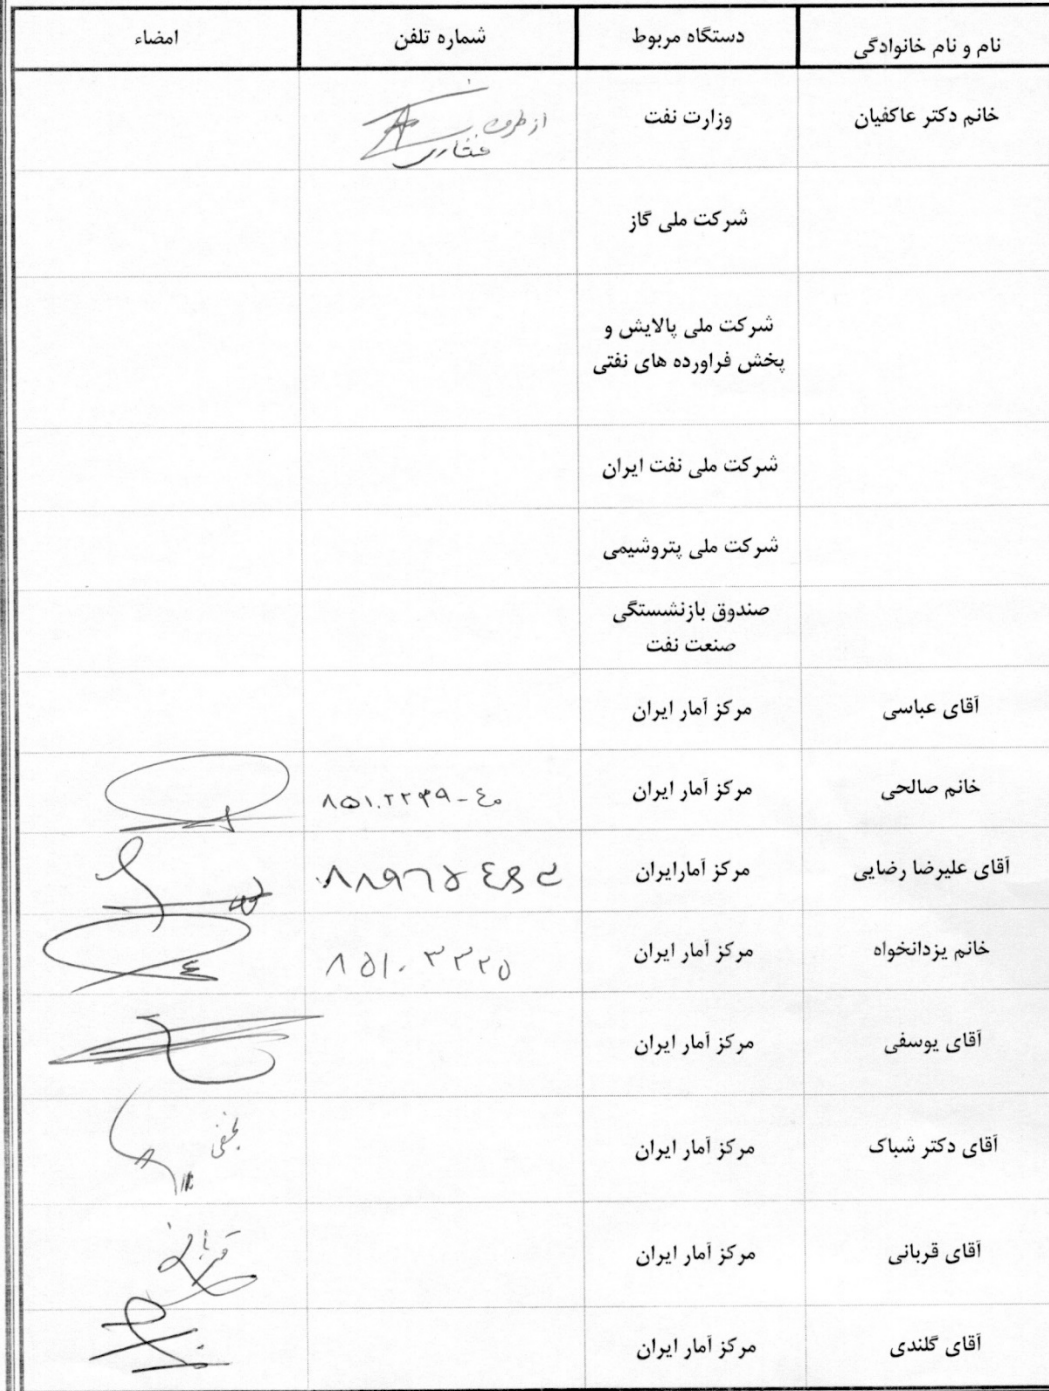 نام و نام خانوادگی دستگاه مربوط شماره تلفن امضاء
خانم دکتر عاکفیان وزارت نفت از طرف
شرکت ملی گاز
شرکت ملی پالایش و
پخش فراورده های نفتی
شرکت ملی نفت ایران
شرکت ملی پتروشیمی
صندوق بازنشستگی
صنعت نفت
آقای عباسی مرکز آمار ایران
خانم صالحی مرکز آمار ایران
آقای علیرضا رضایی مرکز آمارایران
خانم یزدانخواه مرکز آمار ایران ۸۵۱۰۳۳۲۵
آقای یوسفی مرکز آمار ایران
آقای دکتر شباک مرکز آمار ایران نجفی
آقای قربانی مرکز آمار ایران قربانی
آقای گلندی مرکز آمار ایران